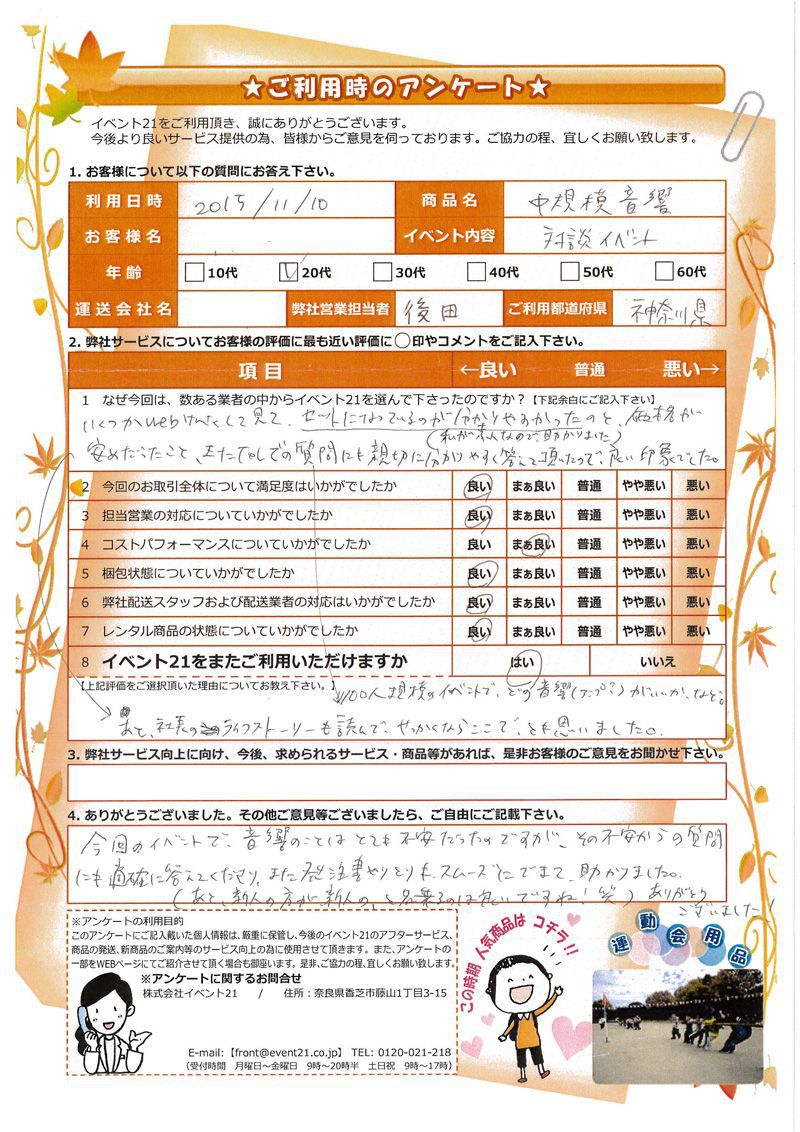 ★ご利用時のアンケート★
イベント21をご利用頂き、誠にありがとうございます。
今後より良いサービス提供の為、皆様からご意見を伺っております。ご協力の程、宜しくお願い致します。
1. お客様について以下の質問にお答え下さい。
利用日時 2015/11/10 商品名 中規模音響
お客様名 イベント内容 対談イベント
年齢 10代 20代 30代 40代 50代 60代
運送会社名 弊社営業担当者 後田 ご利用都道府県 神奈川県
2. 弊社サービスについてお客様の評価に最も近い評価に◯印やコメントをご記入下さい。
項目 ←良い 普通 悪い→
1 なぜ今回は、数ある業者の中からイベント21を選んで下さったのですか？【下記余白にご記入下さい】
いくつかweb見て、セットになっているのが分かりやすかったのと、価格が
(私が素人なので助かりました)
安めだったこと、またTELでの質問にも親切に分かりやすく答えて頂たので、良い印象でした。
2 今回のお取引全体について満足度はいかがでしたか 良い まぁ良い 普通 やや悪い 悪い
3 担当営業の対応についていかがでしたか 良い まぁ良い 普通 やや悪い 悪い
4 コストパフォーマンスについていかがでしたか 良い まぁ良い 普通 やや悪い 悪い
5 梱包状態についていかがでしたか 良い まぁ良い 普通 やや悪い 悪い
6 弊社配送スタッフおよび配送業者の対応はいかがでしたか 良い まぁ良い 普通 やや悪い 悪い
7 レンタル商品の状態についていかがでしたか 良い まぁ良い 普通 やや悪い 悪い
8 イベント21をまたご利用いただけますか はい いいえ
【上記評価をご選択頂いた理由についてお教え下さい。】
100人規模のイベントで、どの音響(アンプ？)がいいか、など。
あと、社長のライフストーリーも読んで、せっかくならここで、とも思いました。
3. 弊社サービス向上に向け、今後、求められるサービス・商品等があれば、是非お客様のご意見をお聞かせ下さい。
4. ありがとうございました。その他ご意見等ございましたら、ご自由にご記載下さい。
今回のイベントで、音響のことはとても不安だったのですが、その不安からの質問
にも適確に答えてくださり、また発注書やりとりもスムーズにできて、助かりました。
(あと、新人の方が「新人の、」と名乗るのは良いですね！笑) ありがとう
ございました！
※アンケートの利用目的
このアンケートにご記入戴いた個人情報は、厳重に保管し、今後のイベント21のアフターサービス、
商品の発送、新商品のご案内等のサービス向上の為に使用させて頂きます。また、アンケートの
一部をWEBページにてご紹介させて頂く場合も御座います。是非、ご協力の程、宜しくお願い致します。
※アンケートに関するお問合せ
株式会社イベント21 / 住所：奈良県香芝市藤山1丁目3-15
E-mail:【front@event21.co.jp】 TEL: 0120-021-218
（受付時間 月曜日～金曜日 9時～20時半 土日祝 9時～17時）
この時期 人気商品は コチラ!!
運動会用品